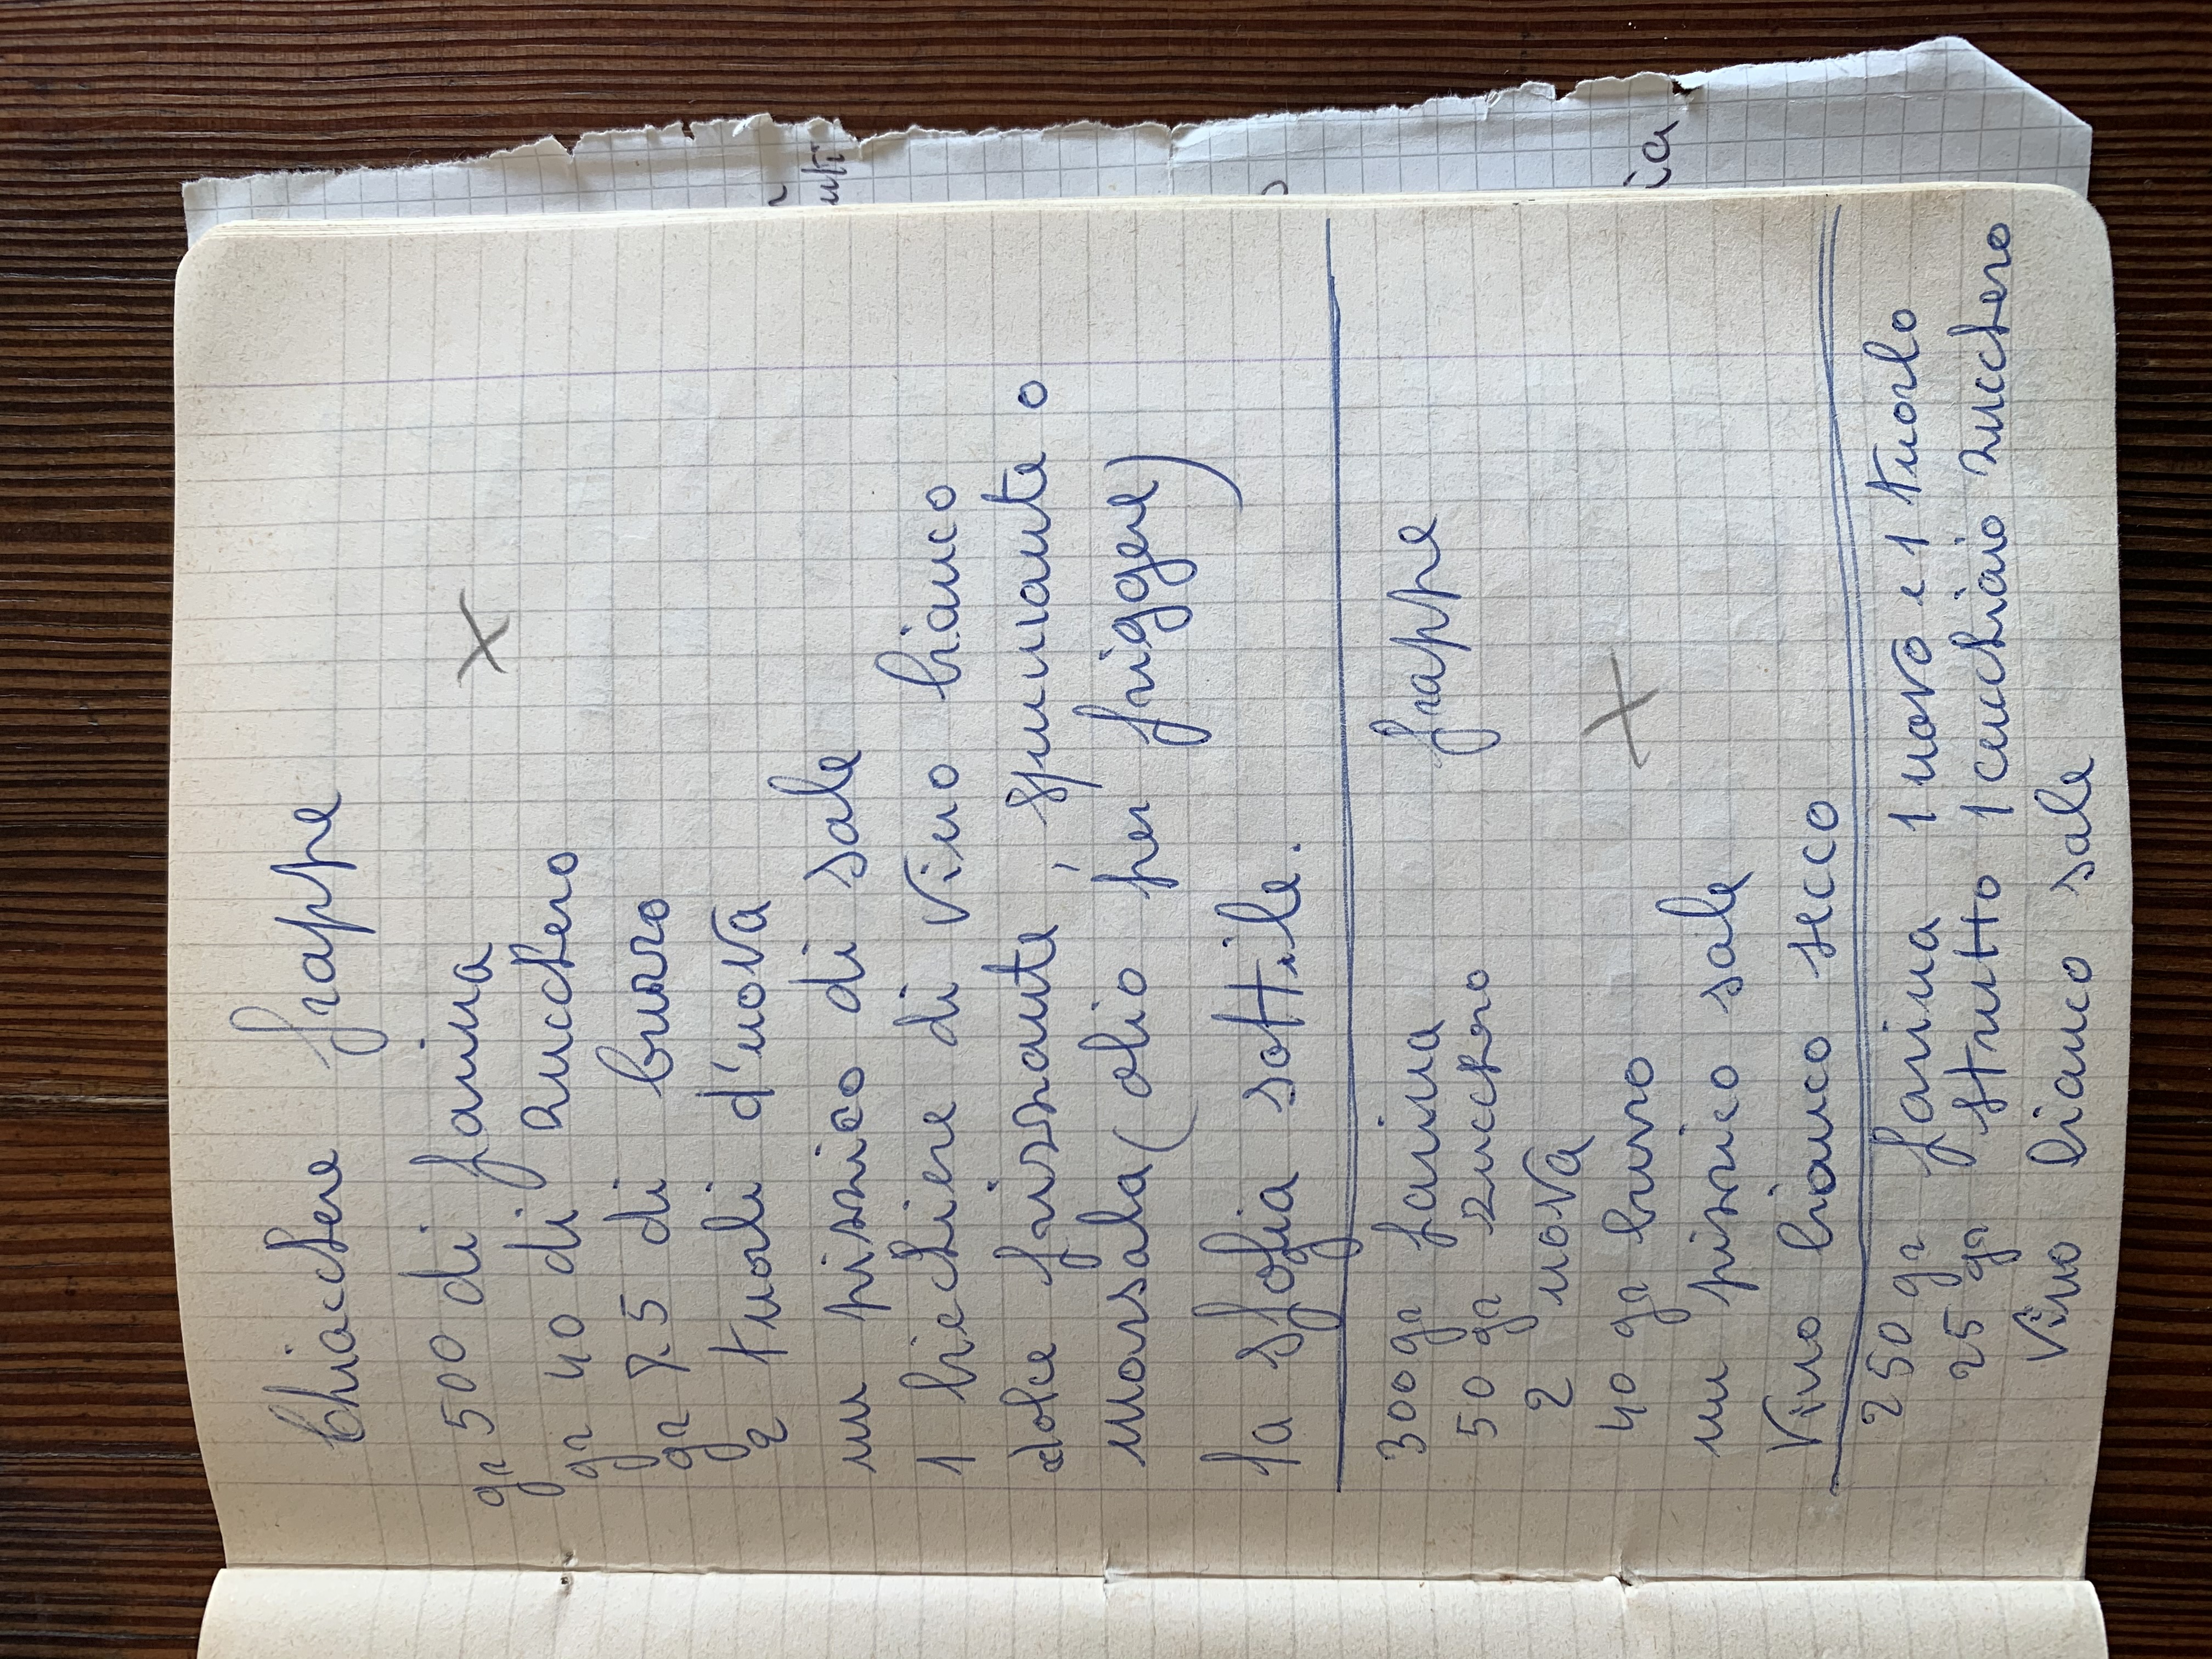 Chiacchere frappe
gr 500 di farina
gr 40 di zucchero
gr 75 di burro
2 tuorli d'uova
un pizzico di sale
1 bicchiere di vino bianco
dolce frizzante, spumante o
marsala (olio per friggere)
la sfoglia sottile.
300 gr farina frappe
50 gr zucchero
2 uova
40 gr burro
un pizzico sale
Vino bianco secco
250 gr farina 1 uovo e 1 tuorlo
25 gr strutto 1 cucchiaio zucchero
Vino bianco sale